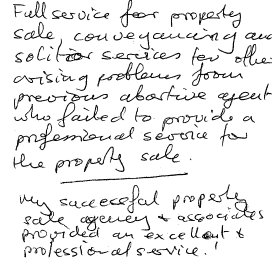 Full service for property
sale, conveyancing and
solicitor services for other
arising problems from
previous abortive agent
who failed to provide a
professional service for
the property sale.
My successful property
sale agency & associates
provided an excellent &
professional service!